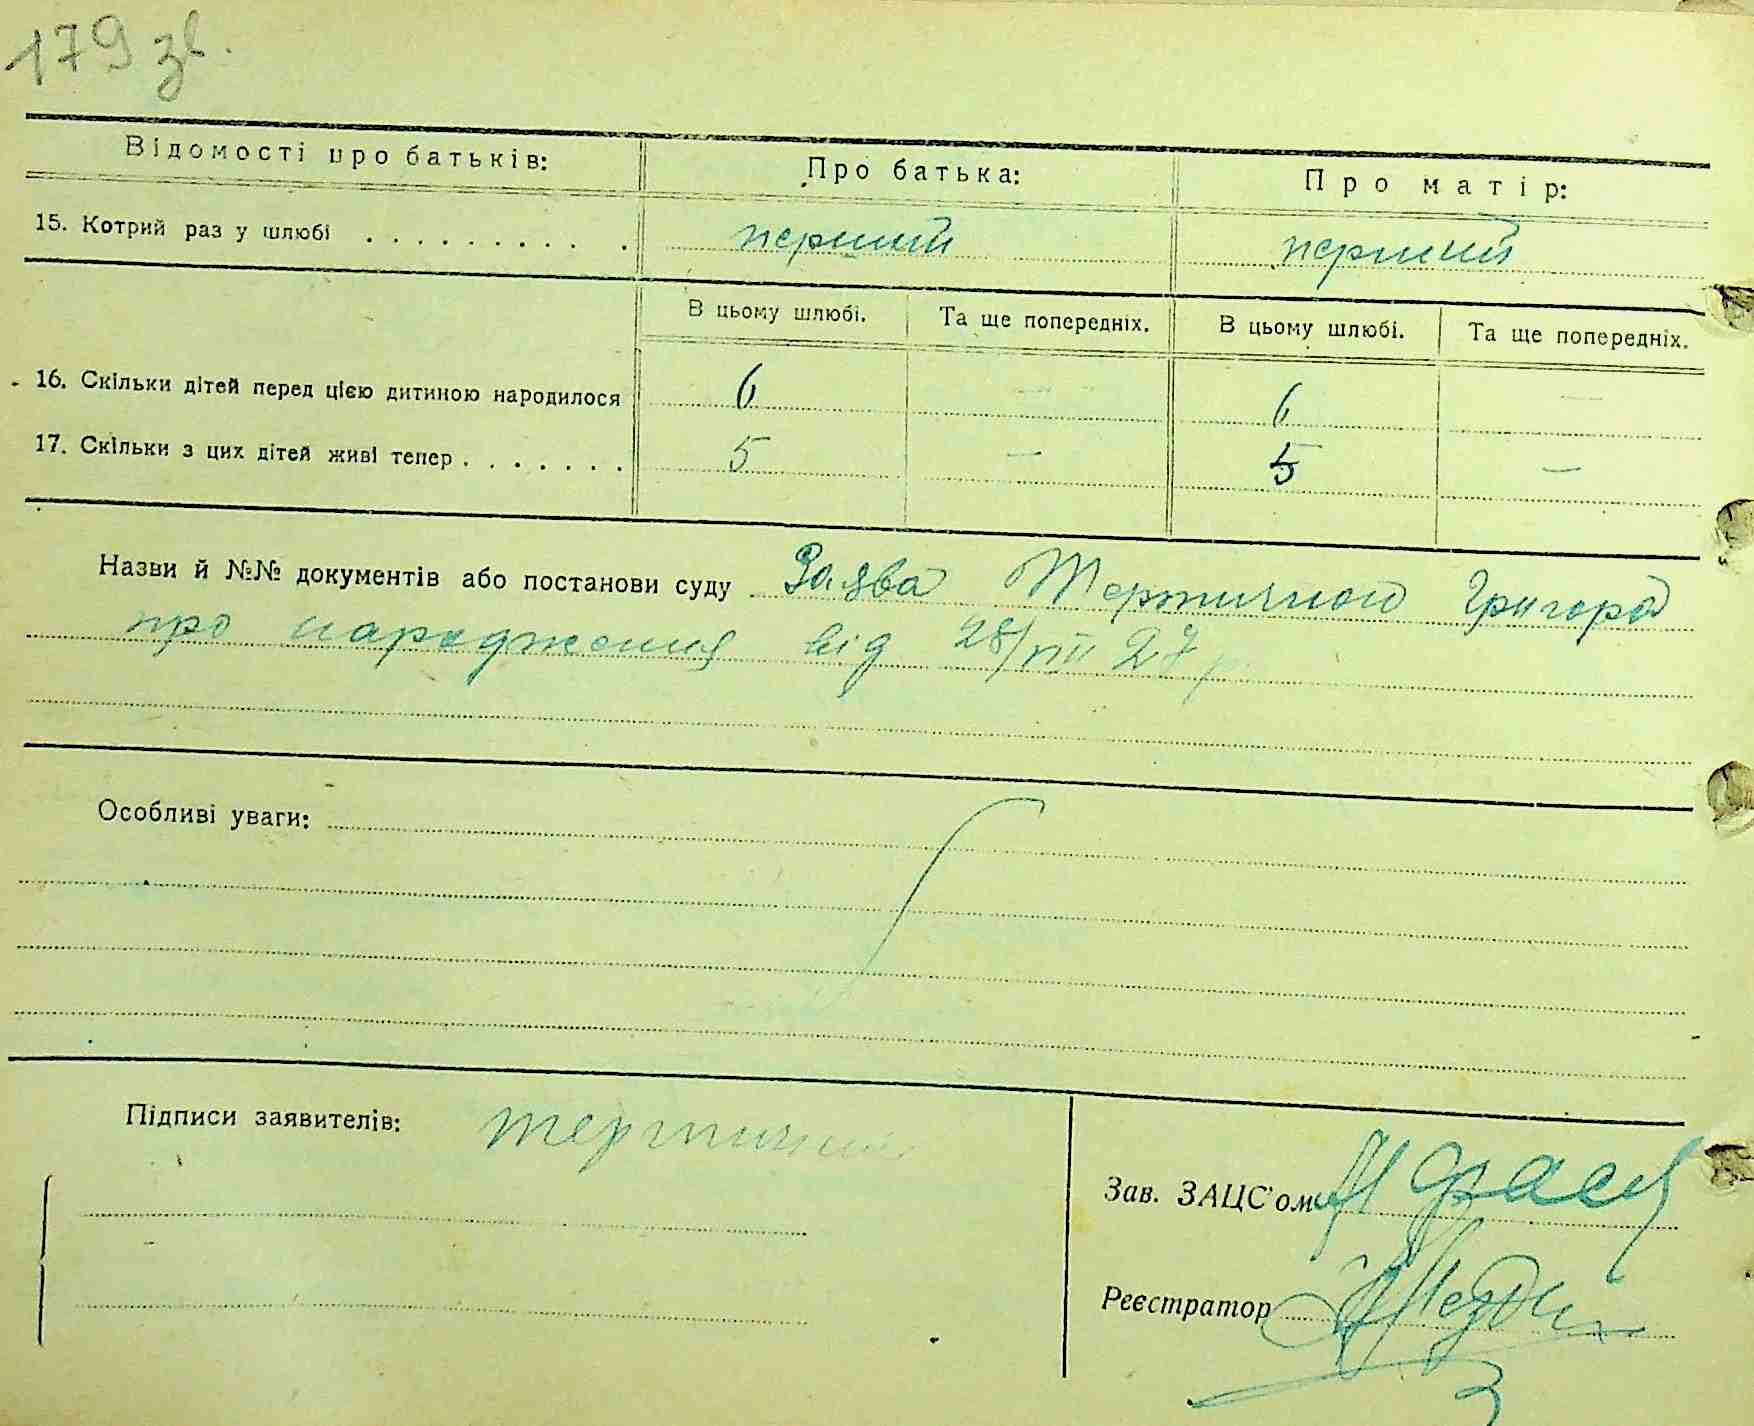 179 зв.
Відомості про батьків: Про батька: Про матір:
15. Котрий раз у шлюбі . . . . . . . . . . перший перший
В цьому шлюбі. Та ще попередніх. В цьому шлюбі. Та ще попередніх.
16. Скільки дітей перед цією дитиною народилося 6 — 6 —
17. Скільки з цих дітей живі тепер . . . . . . . 5 — 5 —
Назви й №№ документів або постанови суду Заява Терпичного Григора
про народження від 28/VIII 27 р
Особливі уваги:
Підписи заявителів:
Зав. ЗАЦС'ом
Реєстратор